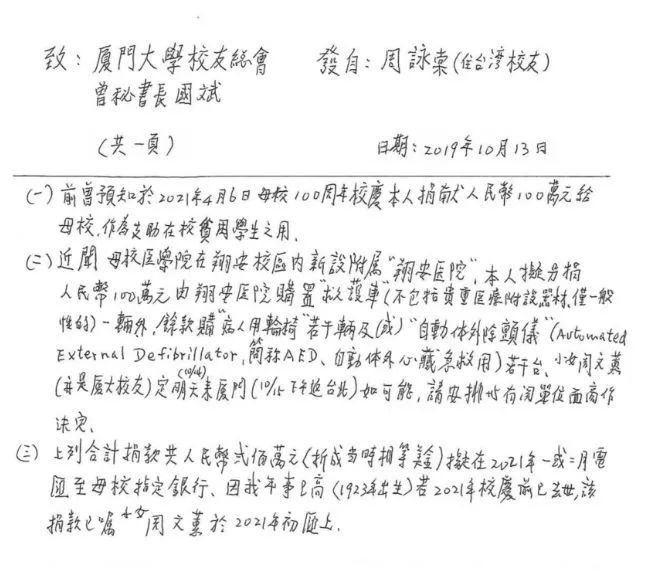 致：厦門大學校友総會 發自：周詠棠(住台湾校友)
曾秘書長國斌
(共一頁) 日期：2019年10月13日
(一) 前曾預知於2021年4月6日母校100周年校慶本人捐献人民幣100萬元給
母校，作為支助在校貧困學生之用.
(二) 近聞 母校医學院在翔安校區内新設附属“翔安医院”，本人擬另捐
人民幣100萬元由翔安医院購置“救護車”(不包括貴重医療附設器材,僅一般
性的)一輛外，餘款購“病人用輪椅”若干輛及(或)“自動体外除顫儀”(Automated
External Defibrillator, 簡称AED、自動体外心臟急救用)若干台。小女周文薰
(亦是厦大校友)定明天(10/14)来厦門(10/15下午返台北)如可能，請安排与有関單位面商作
決定。
(三) 上列合計捐款共人民幣貳佰萬元(折成当時相等美金)擬在2021年一或二月電
匯至母校指定銀行、因我年事已高(1923年出生)若2021年校慶前已去世，該
捐款已嘱小女周文薰於2021年初匯上.